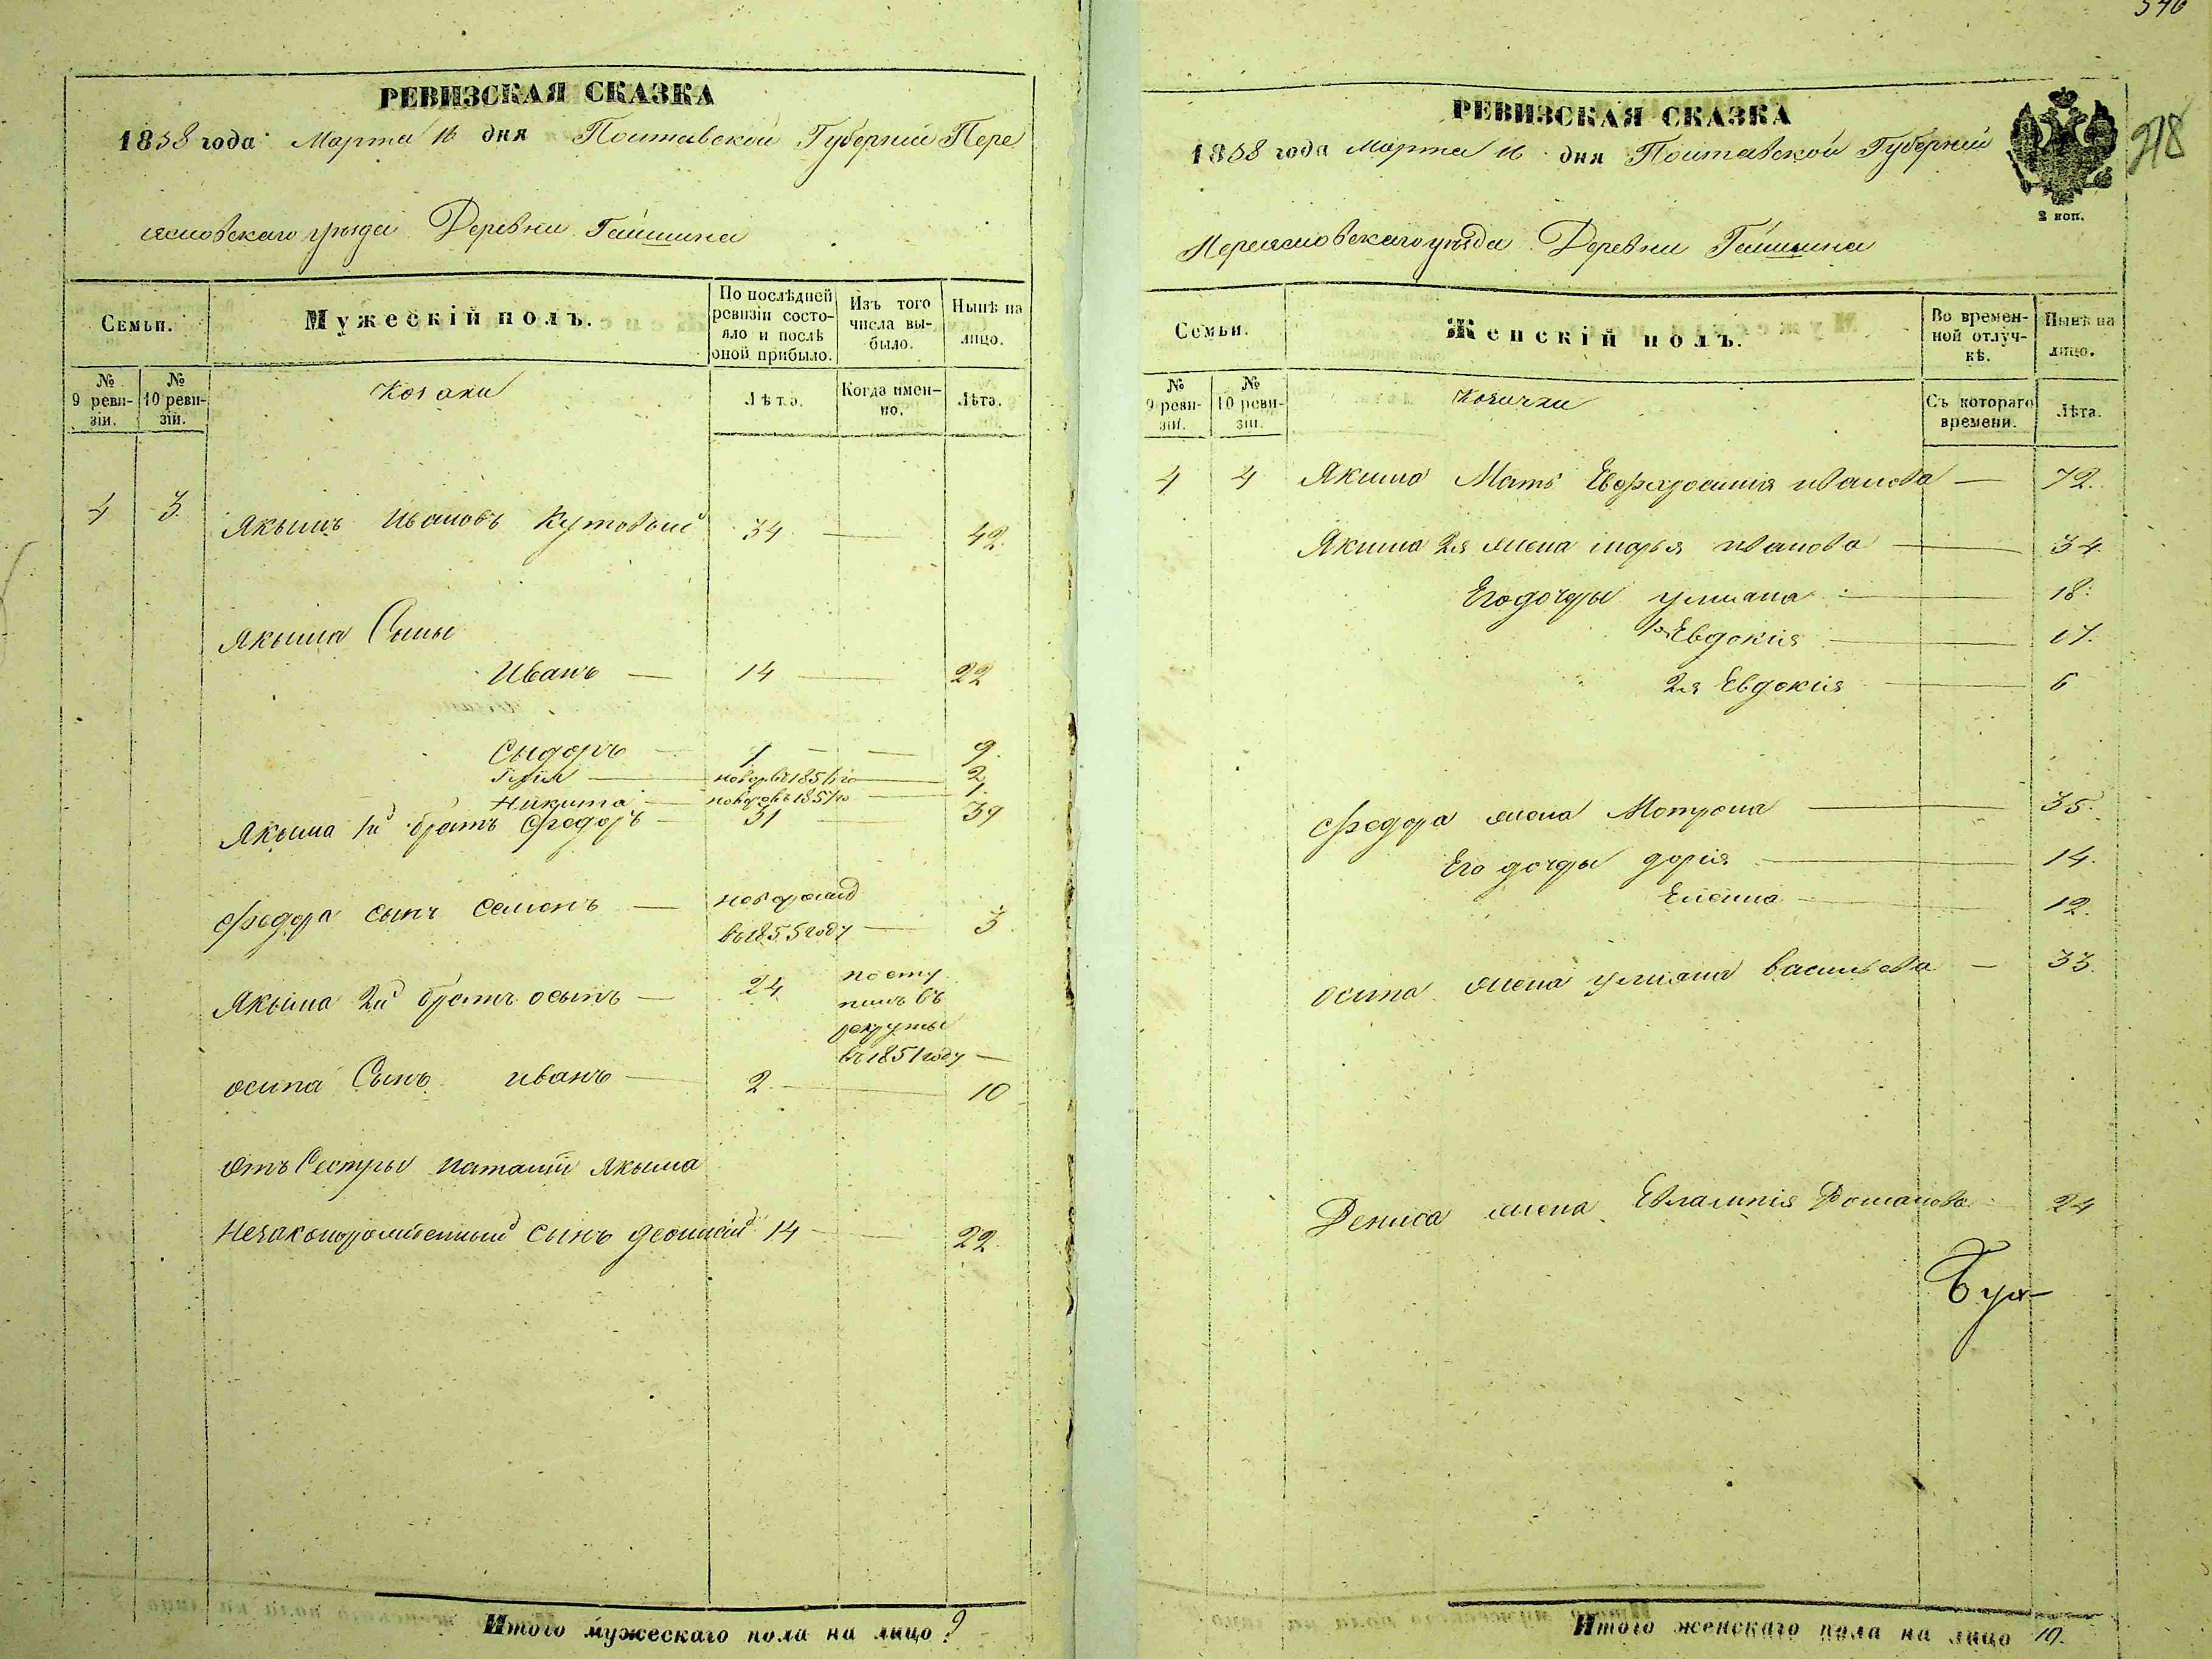 РЕВИЗСКАЯ СКАЗКА
1858 года Марта 16 дня Полтавской Губернии Пере
яславскаго уезда Деревни Гайшина
Семьи.
Мужескій полъ.
По послѣдней ревизіи состояло и послѣ оной прибыло.
Изъ того числа выбыло.
Нынѣ на лицо.
№ 9 ревизіи.
№ 10 ревизіи.
Козаки
Лѣта.
Когда именно.
Лѣта.
4 3 Якымъ Ивановъ Кутовый 34 — 42.
Якыма Сыны
Иванъ — 14 — 22
Сыдоръ — 1 — — 9.
— 2
Никита — — 1.
Якыма 1й братъ Федоръ — 31 — 39
Федора сынъ Семенъ — новорожд
въ 1855 году — 3.
Якыма 2й братъ осыпъ — 24 посту
пилъ въ
рекруты
въ 1851 году —
осипа Сынъ иванъ — 2. — 10
Отъ Сестры наталіи Якыма
Незаконорожденный Сынъ деонисій 14 — 22.
Итого мужескаго пола на лицо 9
346
РЕВИЗСКАЯ СКАЗКА
1858 года Марта 16 дня Полтавской Губерніи
Переяславскаго уезда Деревни Гайшина
2 коп.
Семьи.
Женскій полъ.
Во временной отлучкѣ.
Нынѣ на лицо.
№ 9 ревизіи.
№ 10 ревизіи.
Козачки
Съ котораго времени.
Лѣта.
4 4 Якима Мать Евфросинія иванова — 72.
Якима 2я жена марья иванова — 34.
Его дочеры улиана — 18.
1я Евдокія — 17.
2я Евдокія — 6
Федора жена Мотрона — 35.
Его дочеры дарія — 14.
Елена — 12.
Осипа жена улиана васильева — 33.
Дениса жена Евлампія Романова 24
Итого женскаго пола на лицо 10.